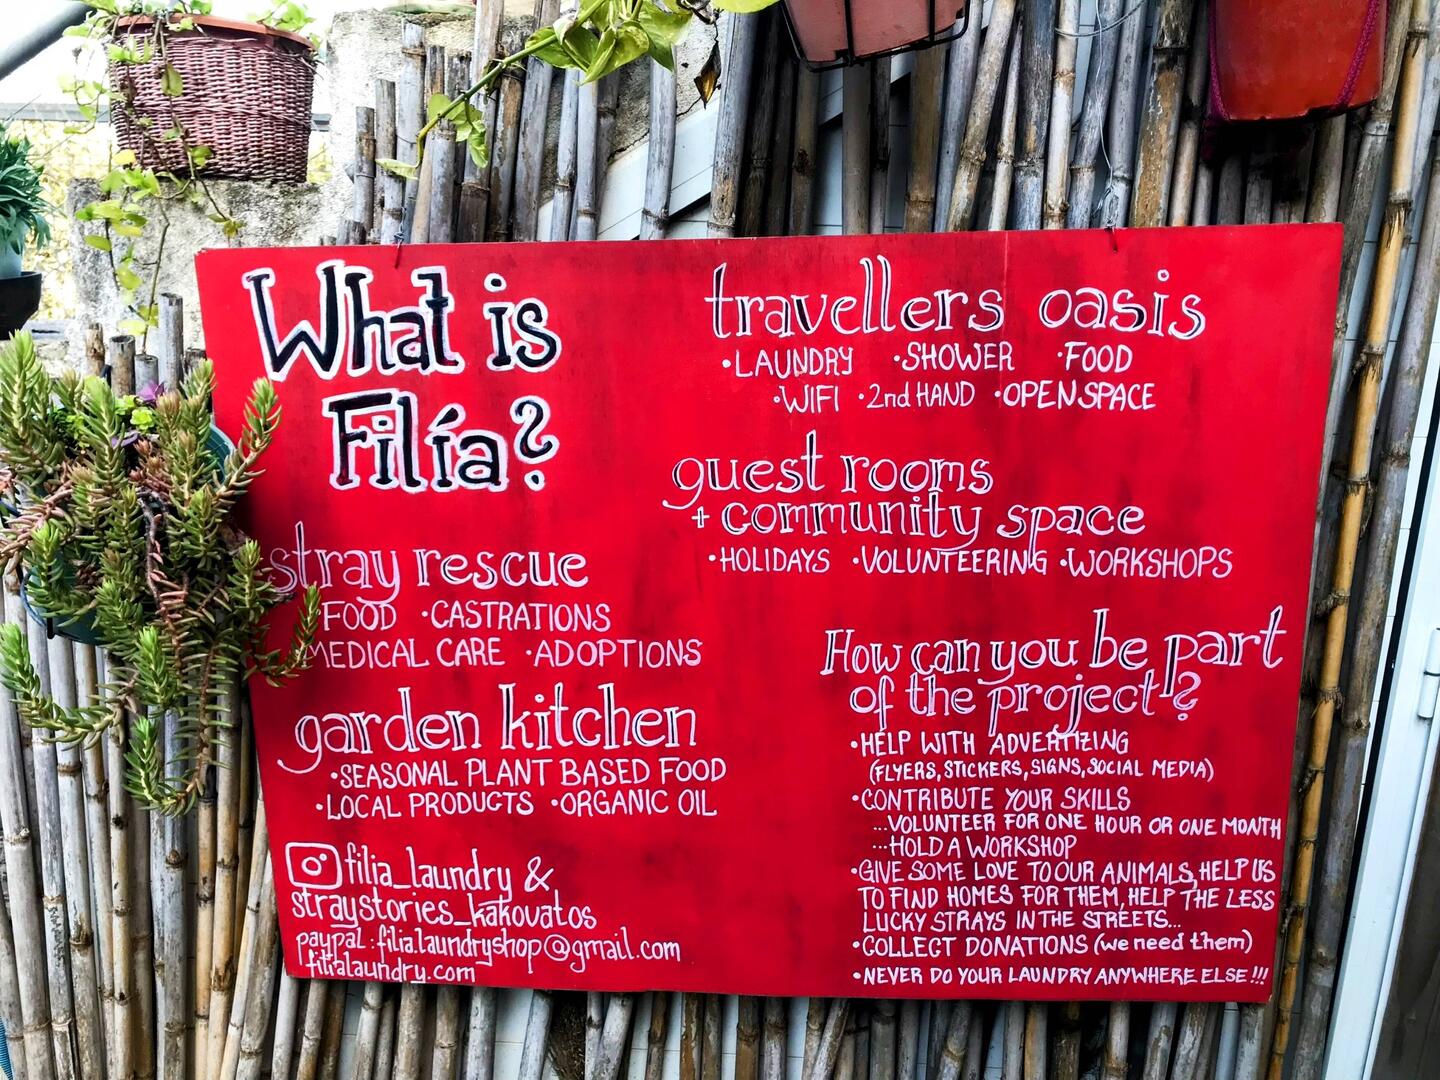 What is
Filía?
stray rescue
FOOD •CASTRATIONS
MEDICAL CARE •ADOPTIONS
garden kitchen
•SEASONAL PLANT BASED FOOD
•LOCAL PRODUCTS •ORGANIC OIL
filia_laundry &
straystories_kakovatos
paypal:filia.laundryshop@gmail.com
filialaundry.com
travellers oasis
•LAUNDRY •SHOWER •FOOD
•WIFI •2nd HAND •OPEN SPACE
guest rooms
+ community space
•HOLIDAYS •VOLUNTEERING •WORKSHOPS
How can you be part
of the project?
•HELP WITH ADVERTIZING
(FLYERS, STICKERS, SIGNS, SOCIAL MEDIA)
•CONTRIBUTE YOUR SKILLS
...VOLUNTEER FOR ONE HOUR OR ONE MONTH
...HOLD A WORKSHOP
•GIVE SOME LOVE TO OUR ANIMALS, HELP US
TO FIND HOMES FOR THEM, HELP THE LESS
LUCKY STRAYS IN THE STREETS...
•COLLECT DONATIONS (we need them)
•NEVER DO YOUR LAUNDRY ANYWHERE ELSE!!!